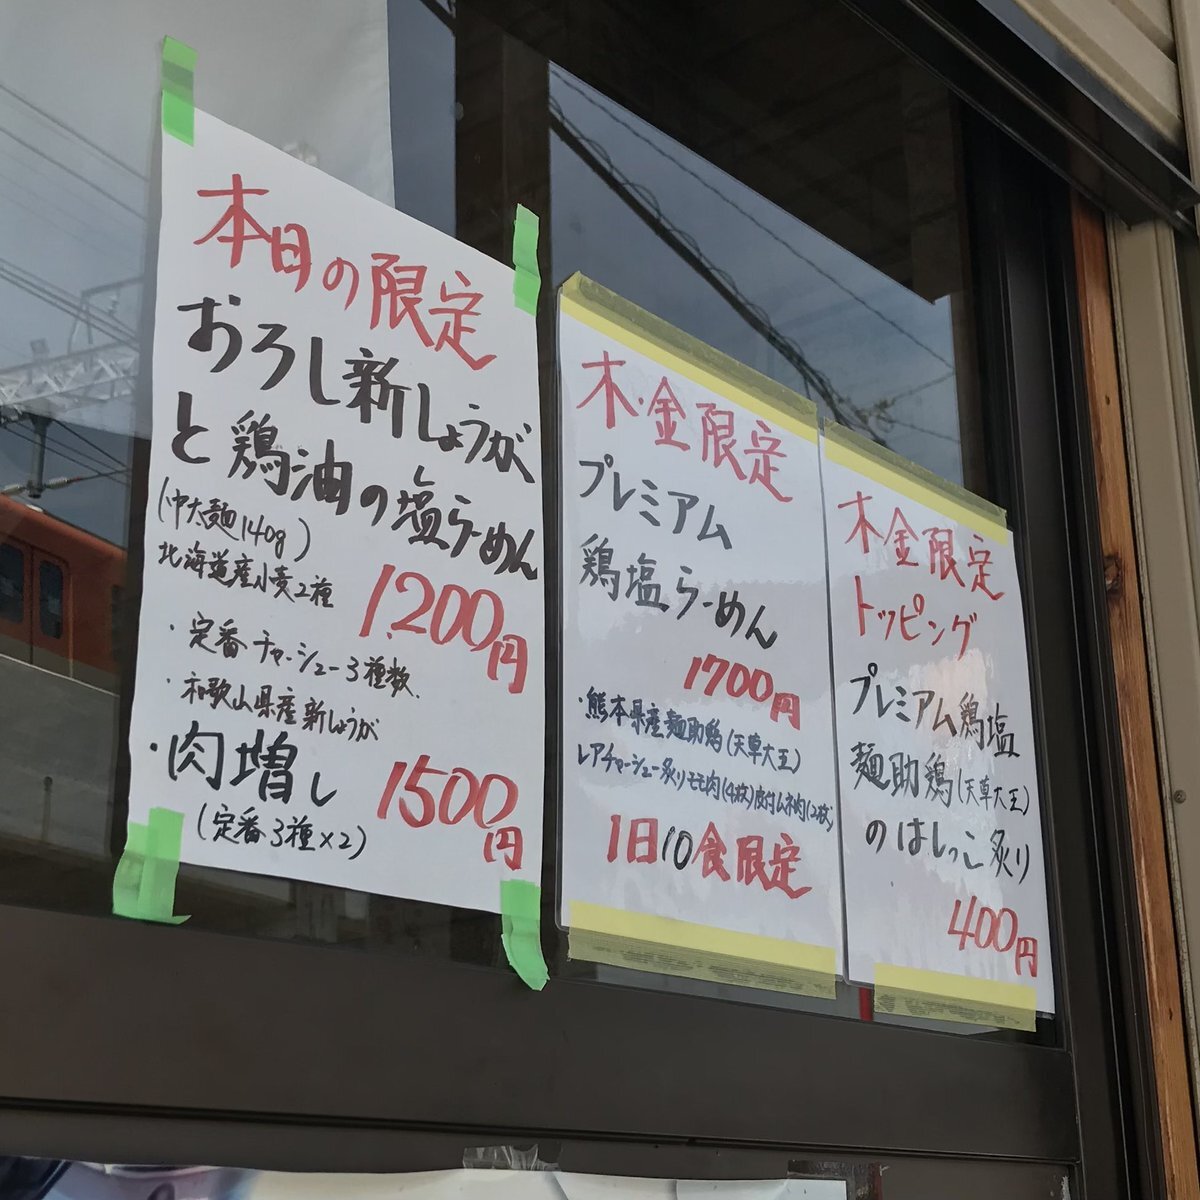 本日の限定
おろし新しょうが
と鶏油の塩らーめん
(中太麺140g)
北海道産小麦2種
1,200円
・定番チャーシュー3種数
・和歌山県産新しょうが
・肉増し
1500円
(定番3種×2)
木・金限定
プレミアム
鶏塩らーめん
1700円
・熊本県産麺助鶏(天草大王)
レアチャーシュー炙りモモ肉(4枚)皮付ムネ肉(2枚)
1日10食限定
木金限定
トッピング
プレミアム鶏塩
麺助鶏(天草大王)
のはしっこ炙り
400円